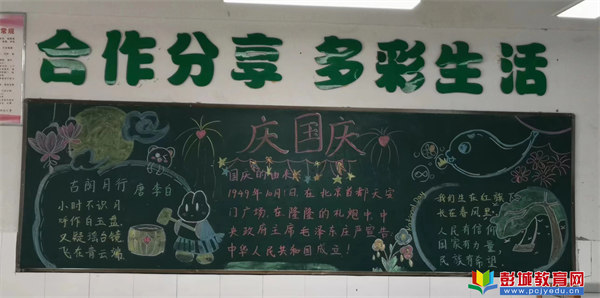 常规
合作分享 多彩生活
庆国庆
国庆的由来
1949年10月1日,在北京首都天安
门广场,在隆隆的礼炮中,中
央政府主席毛泽东庄严宣告:
中华人民共和国成立!
古朗月行 唐 李白
小时不识月
呼作白玉盘,
又疑瑶台镜
飞在青云端.
National Day
我们生在红旗下
长在春风里,
人民有信仰
国家有力量
民族有希望!
彭城教育网
www.pcjyedu.cn